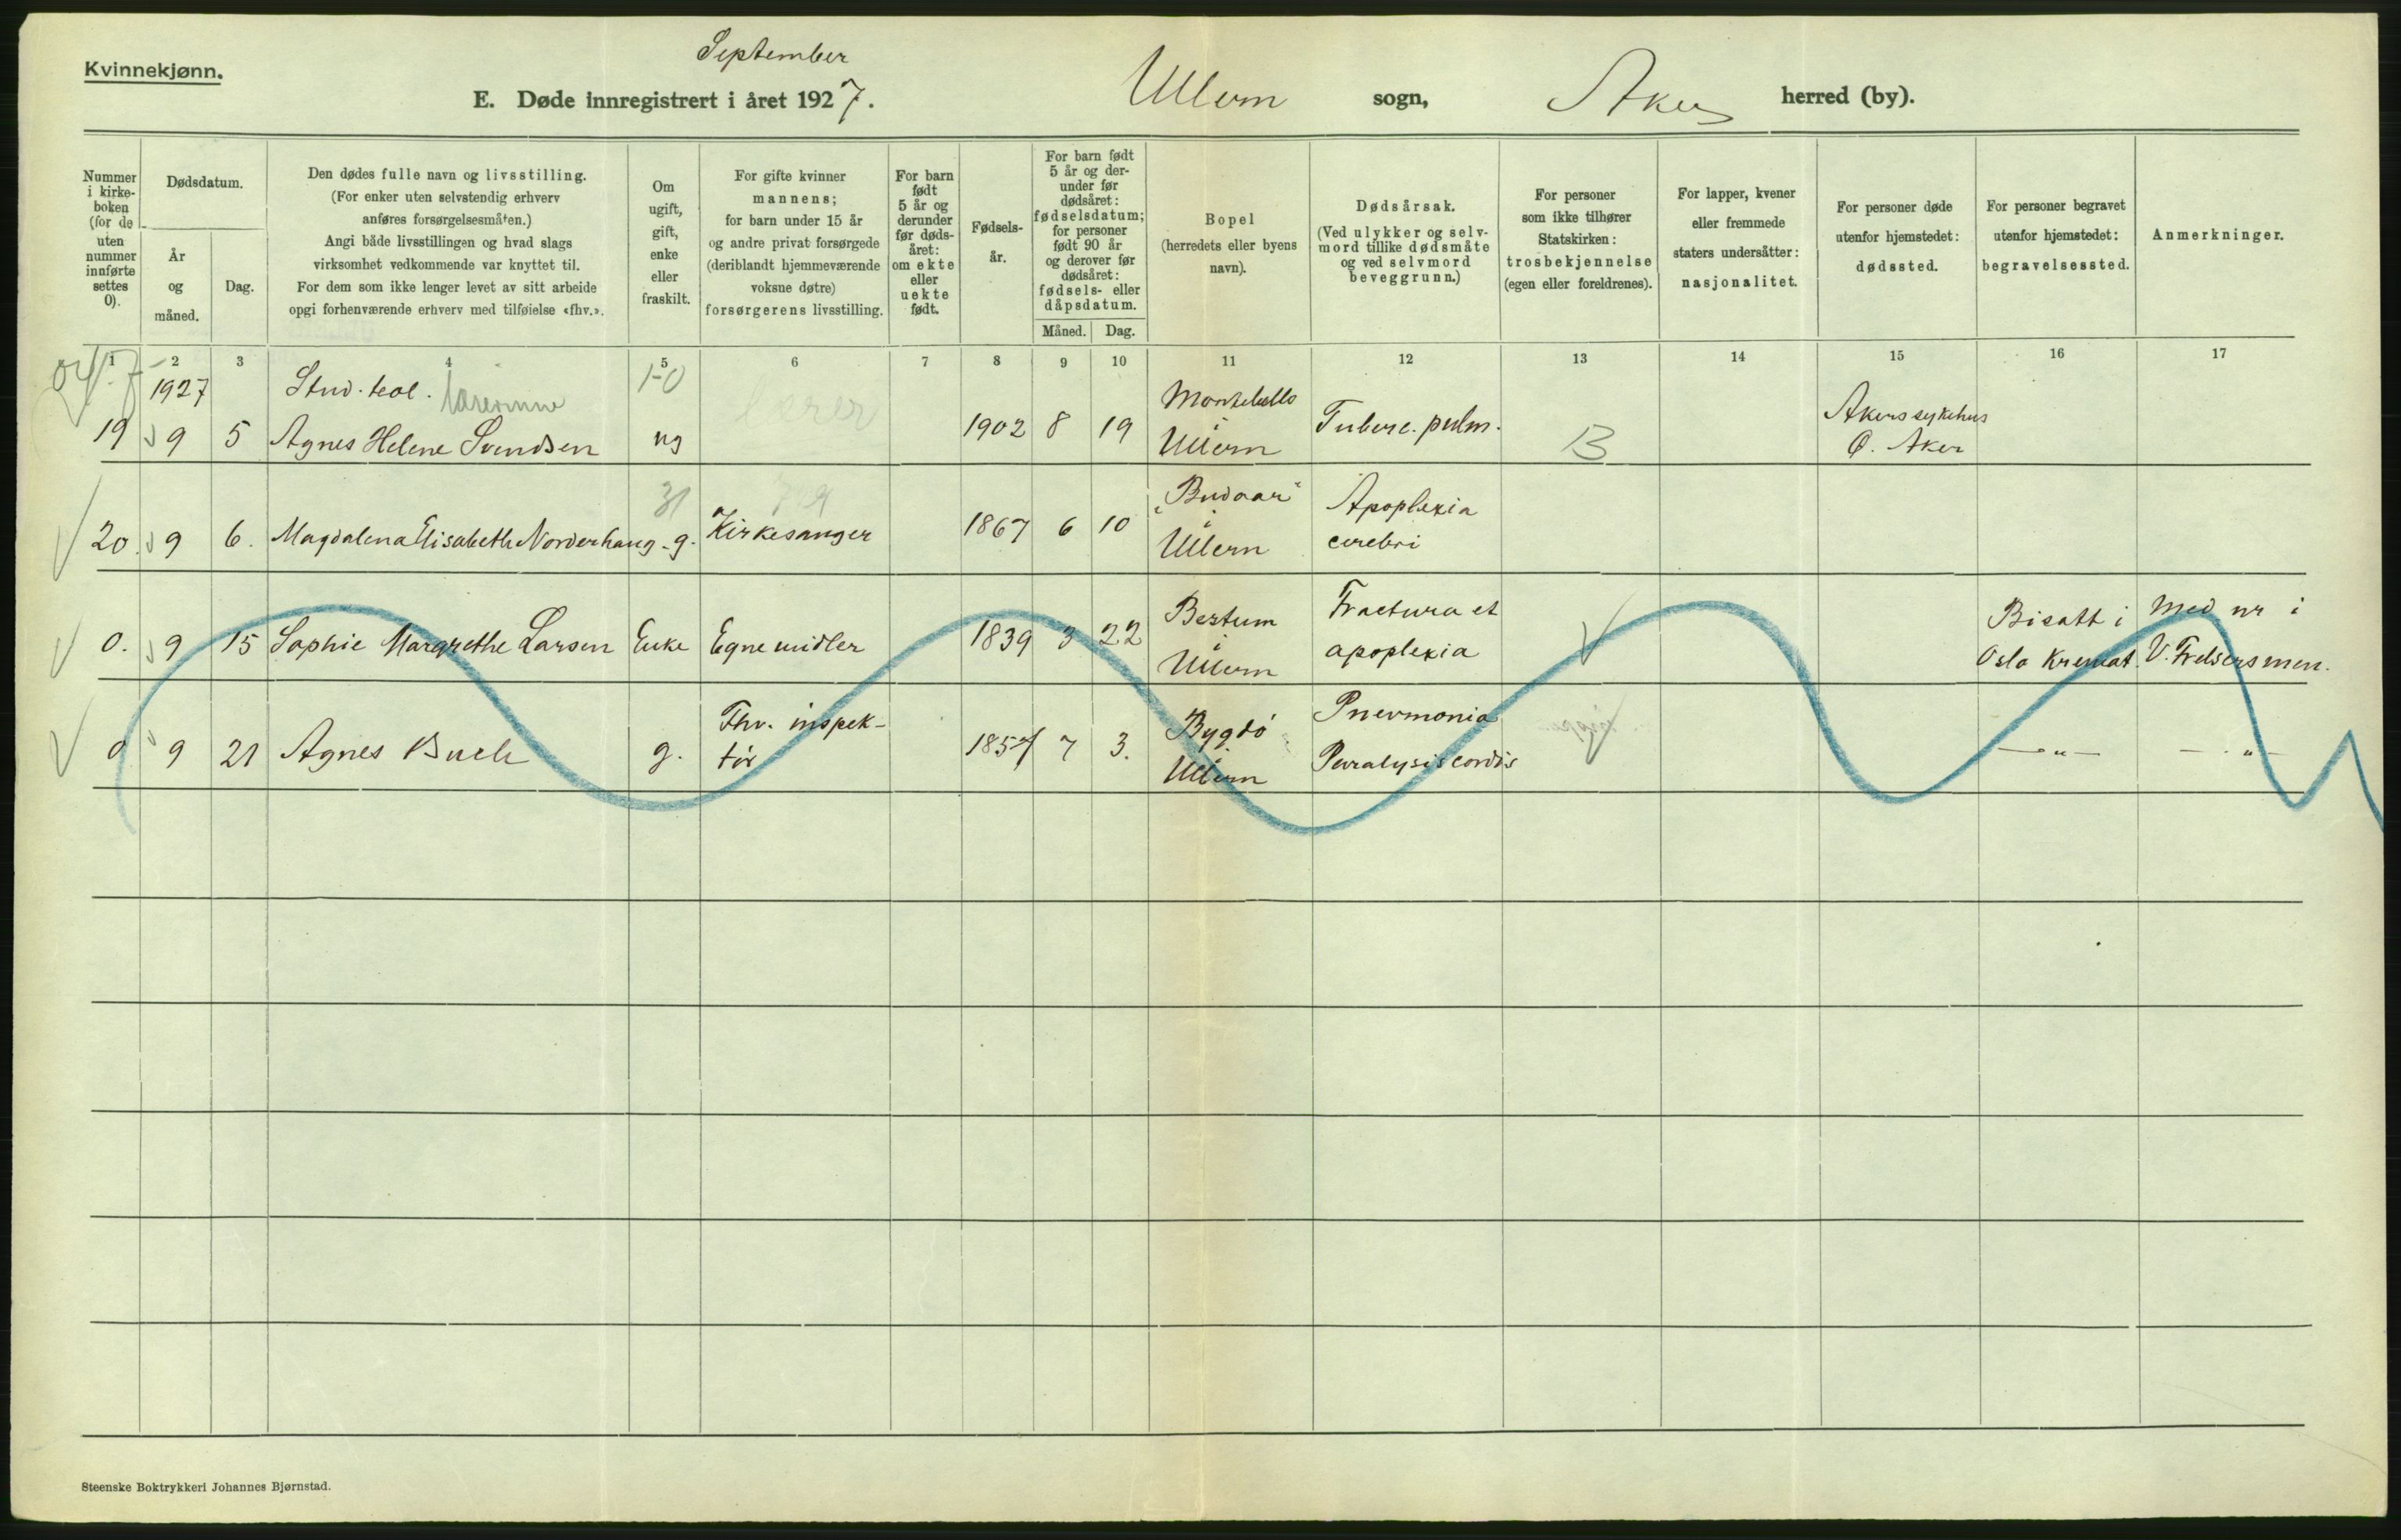 Kvinnekjønn.
September
E. Døde innregistrert i året 1927. Ullern sogn, Aker herred (by).
Nummer i kirkeboken (for de uten nummer innførte settes 0).
Dødsdatum.
År og måned.
Dag.
Den dødes fulle navn og livsstilling.
(For enker uten selvstendig erhverv
anføres forsørgelsesmåten.)
Angi både livsstillingen og hvad slags
virksomhet vedkommende var knyttet til.
For dem som ikke lenger levet av sitt arbeide
opgi forhenværende erhverv med tilføielse «fhv.».
Om ugift, gift, enke eller fraskilt.
For gifte kvinner
mannens;
for barn under 15 år
og andre privat forsørgede
(deriblandt hjemmeværende
voksne døtre)
forsørgerens livsstilling.
For barn født 5 år og derunder før dødsåret: om ekte eller uekte født.
Fødselsår.
For barn født
5 år og derunder før
dødsåret:
fødselsdatum;
for personer
født 90 år
og derover før
dødsåret:
fødsels- eller
dåpsdatum.
Måned. Dag.
Bopel
(herredets eller byens
navn).
Dødsårsak.
(Ved ulykker og selvmord tillike dødsmåte
og ved selvmord
beveggrunn.)
For personer
som ikke tilhører
Statskirken:
trosbekjennelse
(egen eller foreldrenes).
For lapper, kvener
eller fremmede
staters undersåtter:
nasjonalitet.
For personer døde
utenfor hjemstedet:
dødssted.
For personer begravet
utenfor hjemstedet:
begravelsessted.
Anmerkninger.
1 2 3 4 5 6 7 8 9 10 11 12 13 14 15 16 17
1927 Stud. teol. Lærerinne 1-0 Montebello Akers sykehus
19 9 5 Agnes Helene Svendsen ug 1902 8 19 Ullern Tuberc. pulm. B Ø. Aker
31 "Budaar" Apoplexia
20. 9 6. Magdalena Elisabeth Norderhaug - g. Kirkesanger 1867 6 10 Ullern cerebri
Bestum Fractura et Bisatt i Med nr i
0. 9 15 Sophie Margrethe Larsen Enke Egne midler 1839 3 22 Ullern apoplexia Oslo Kremat. V. Frelsers men.
Fhv. inspek- Bygdø Pnevmonia
0 9 21 Agnes Buch g. tør 1857 7 3. Ullern Paralysis cordis —„— —„—
Steenske Boktrykkeri Johannes Bjørnstad.